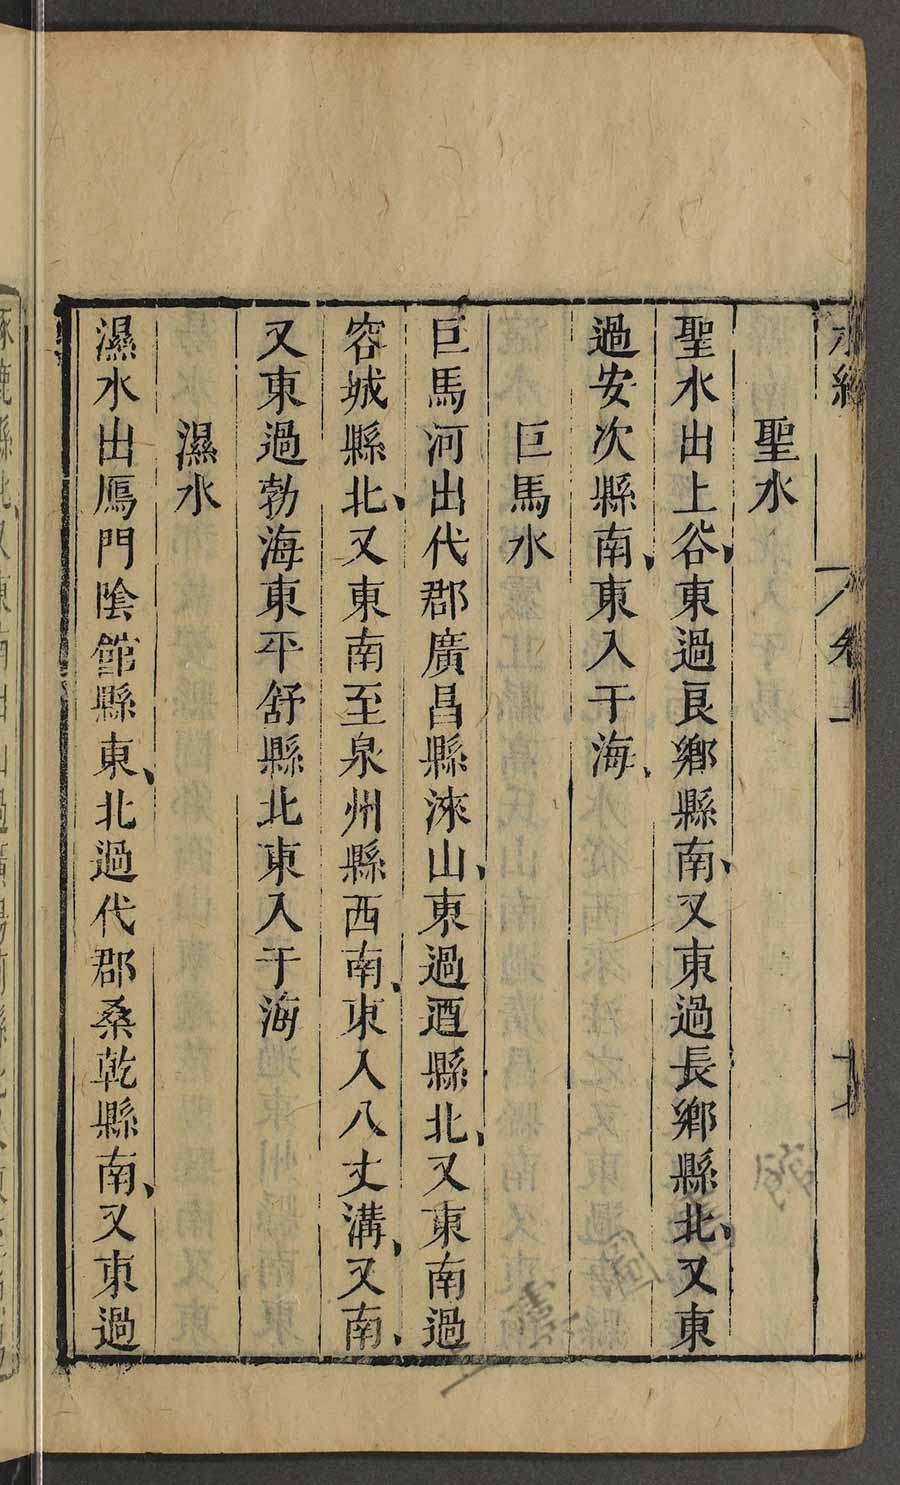 水經
聖水
聖水出上谷、東過良鄉縣南、又東過長鄉縣北、又東
過安次縣南、東入于海、
巨馬水
巨馬河出代郡廣昌縣淶山、東過遒縣北、又東南過
容城縣北、又東南至泉州縣西南、東入八丈溝、又南、
又東過勃海東平舒縣北東入于海
濕水
濕水出鴈門陰館縣東、北過代郡桑乾縣南、又東過